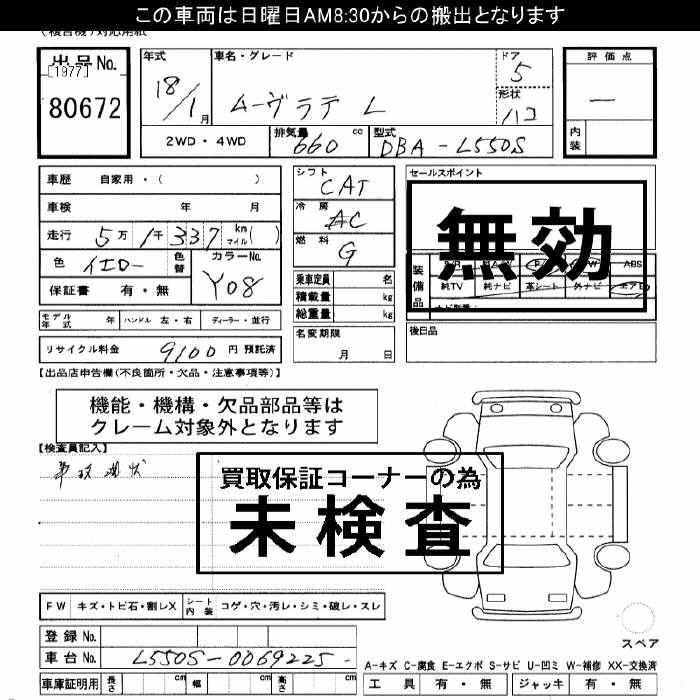 この車両は日曜日AM8:30からの搬出となります
出品No.
[1977]
80672
年式
18/1月
車名・グレード
ムーヴラテ L
ドア
5
形状
ハコ
評価点
—
内装
2WD・4WD
排気量
660 cc
型式
DBA-L550S
車歴 自家用・( )
車検 年 月
走行 5万1千337 km マイル( )
色 イエロー 色替
カラーNo.
Y08
保証書 有・無
シフト
CAT
冷房
AC
燃料
G
乗車定員 名
積載量 kg
総重量 kg
名変期限
月 日
セールスポイント
無効
装備品
ABS
純TV 純ナビ 革シート 外ナビ エアB
後日品
モデル年式 年 ハンドル 左・右 ディーラー・並行
リサイクル料金 9100 円 預託済
【出品店申告欄(不良箇所・欠品・注意事項等)】
機能・機構・欠品部品等は
クレーム対象外となります
【検査員記入】
現状
買取保証コーナーの為
未検査
FW キズ・トビ石・割レX シート内装 コゲ・穴・汚レ・シミ・破レ・スレ
登録No.
車台No. L550S-0069225-
車庫証明用 長さ cm 幅 cm 高さ cm
スペア
A-キズ C-腐食 E-エクボ S-サビ U-凹ミ W-補修 XX-交換済
工具 有・無 ジャッキ 有・無